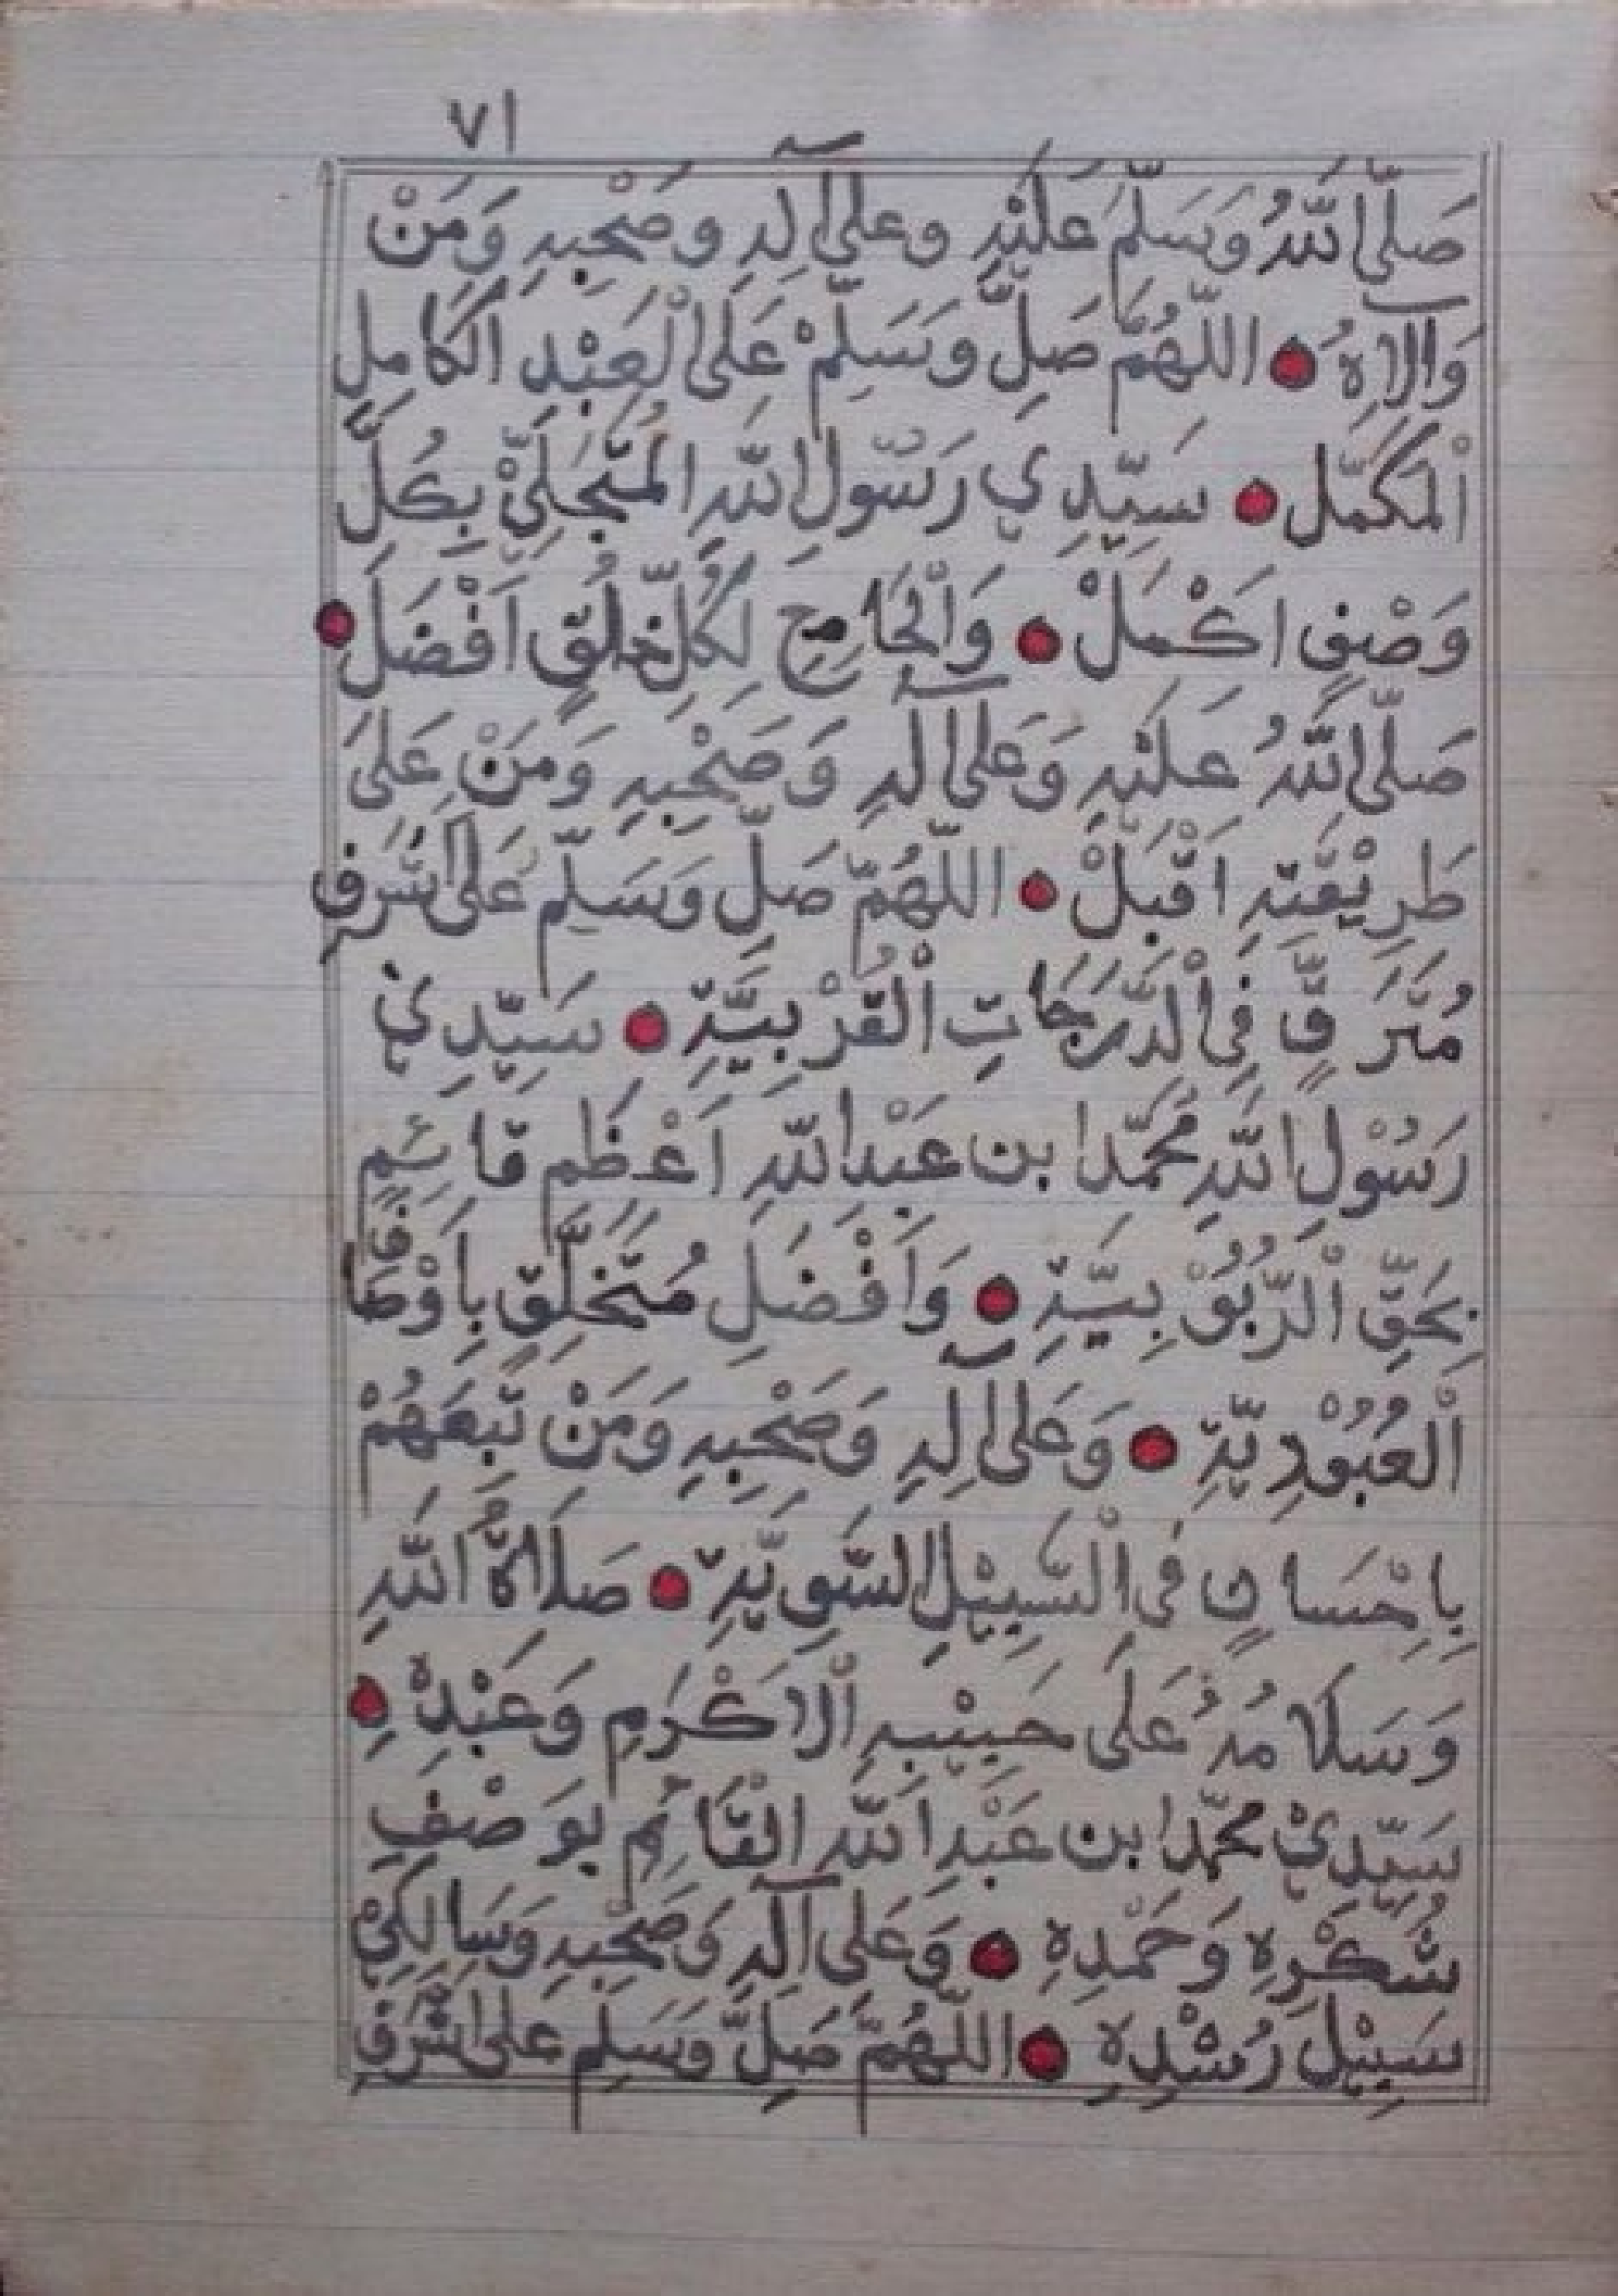 ٧١
صَلَّى اللّٰهُ وَسَلَّمَ عَلَيْهِ وعلى آلِهِ وصَحْبِهِ وَمَنْ
وَالَاهُ ● اللّٰهُمَّ صَلِّ وَسَلِّمْ عَلَى الْعَبْدِ الكَامِلِ
الْمُكَمَّل ● سَيِّدِي رَسُولِ اللّٰهِ المُتَجَلِّيْ بِكُلِّ
وَصْفٍ اَكْمَلْ ● وَالْجَامِعِ لِكُلِّ خُلُقٍ اَفْضَلَ ●
صَلَّى اللّٰهُ عَلَيْهِ وَعَلَى آلِهِ وَصَحْبِهِ وَمَنْ عَلَى
طَرِيْقَتِهِ اَقْبَلْ ● اللّٰهُمَّ صَلِّ وَسَلِّم عَلَى اَشْرَفِ
مُتَرَقٍّ فِي الْدَّرَجَاتِ الْقُرْبِيَّةِ ● سَيِّدِي
رَسُوْلِ اللّٰهِ مُحَمَّد ابن عَبْدِ اللّٰهِ اَعْظَم قائِمٍ
بِحَقِّ الْرُّبُوْبِيَّةِ ● وَاَفْضَلِ مُتَخَلِّقٍ بِاَوْصَافِ
الْعُبُوْدِيَّةِ ● وَعَلى آلِهِ وَصَحْبِهِ وَمَنْ تَبِعَهُمْ
بِاِحْسَانٍ فِى الْسَّبِيْلِ السَّوِيَّةِ ● صَلَاةُ اللّٰهِ
وَسَلَامُهُ عَلَى حَبِيْبِهِ الْاَكْرَمِ وَعَبْدِهْ ●
سَيِّدِيْ محمّد ابن عَبْدِ اللّٰه الْقَائِم بِوَصْفِ
شُكْرِهِ وَحَمْدِهِ ● وَعَلى آلِهِ وَصَحْبِهِ وَسَالِكِيْ
سَبِيْلِ رُشْدِهِ ● اللّٰهُمَّ صَلِّ وَسَلِّم على اَشْرَفِ